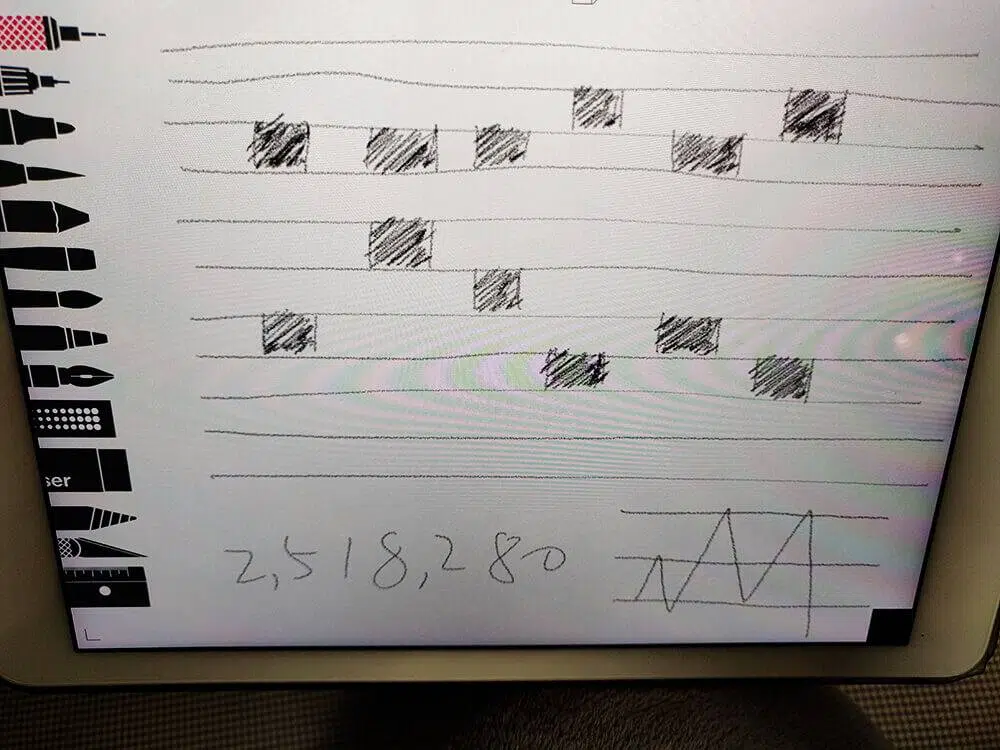 ser
2,518,280